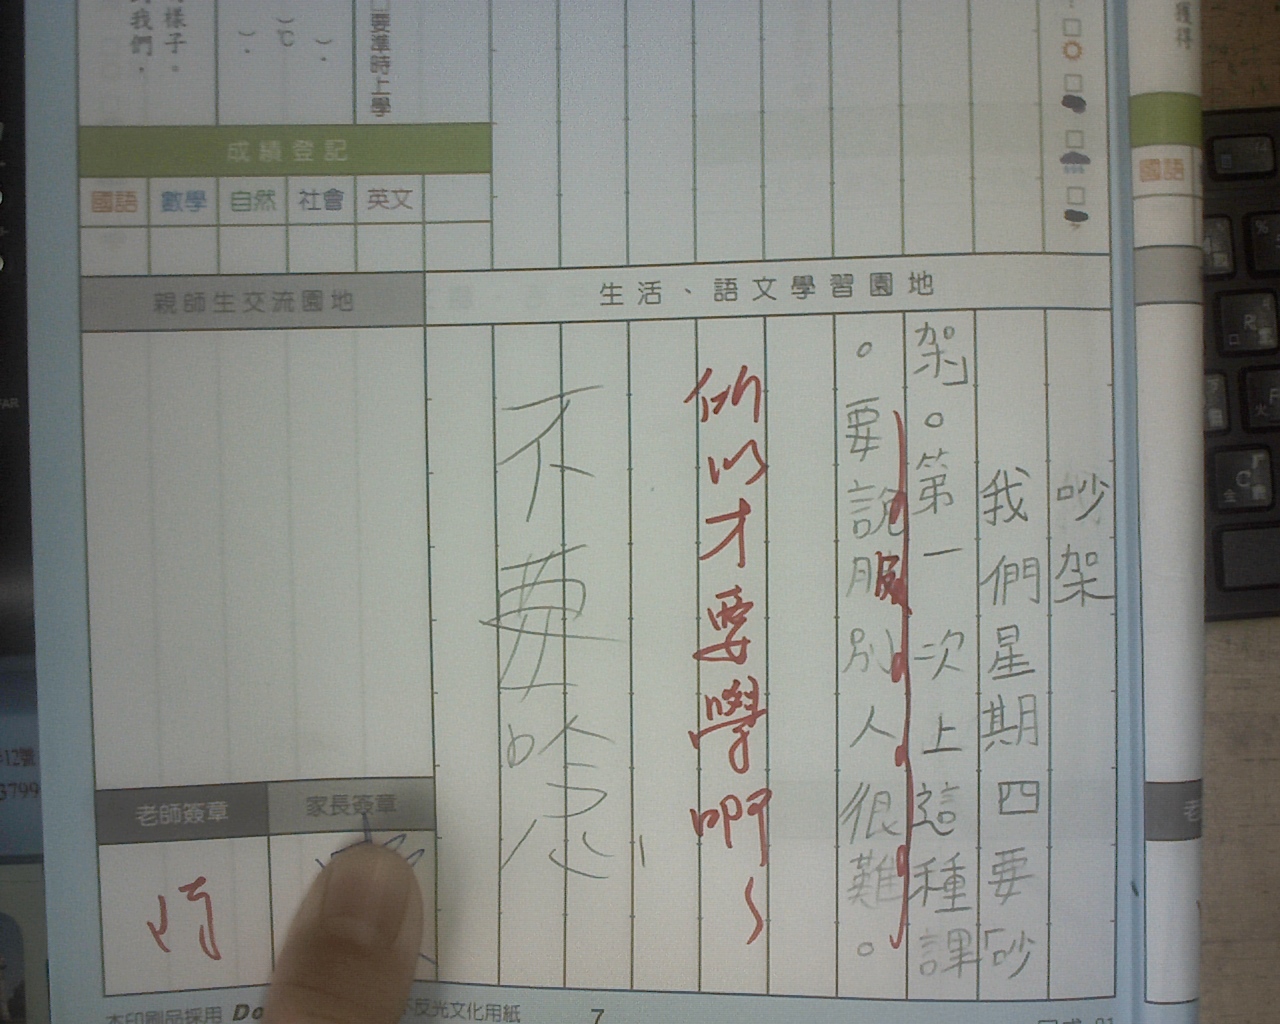 樣子。
我們，
（℃）
要準時上學
成績登記
國語 數學 自然 社會 英文
親師生交流園地
生活、語文學習園地
吵架
我們星期四要「吵
架」。第一次上這種課
。要說服別人很難。
所以才要學啊～
不要唸
老師簽章
家長簽章
國語
7
不反光文化用紙
本印刷品採用 Do